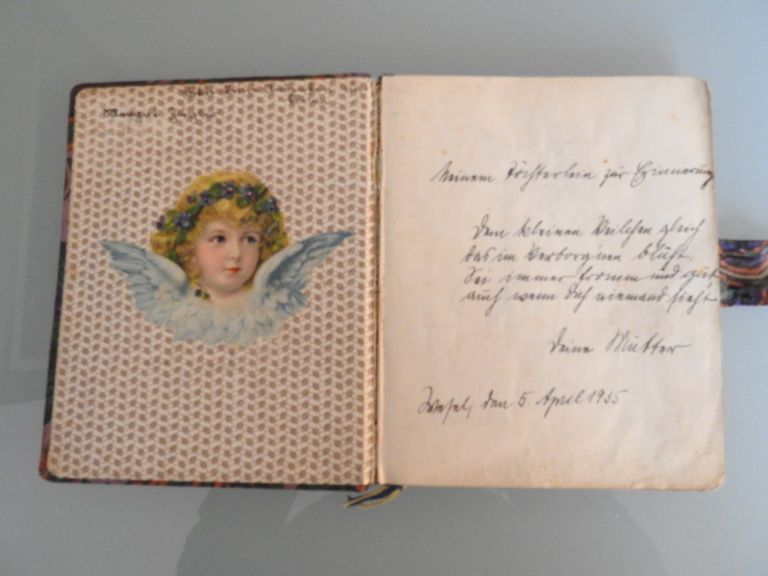 Meinem Töchterlein zur Erinnerung
Dem kleinen Veilchen gleich
das im Verborg'nen blüht.
Sei immer fromm und gut
auch wenn dich niemand sieht.
Deine Mutter
Wesel, den 5. April 1935